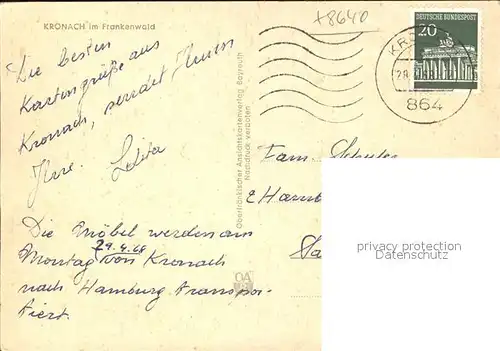 KRONACH im Frankenwald
+8640
DEUTSCHE BUNDESPOST
20
KRO
28.
864
Die besten
Kartengrüße aus
Kronach, sendet Ihnen
Ihre Lolita
Die Möbel werden am
29.4.68
Montag von Kronach
nach Hamburg transpor-
tiert.
Oberfränkischer Ansichtskartenverlag Bayreuth
Nachdruck verboten
Fam.
2 Hamb
privacy protection
Datenschutz